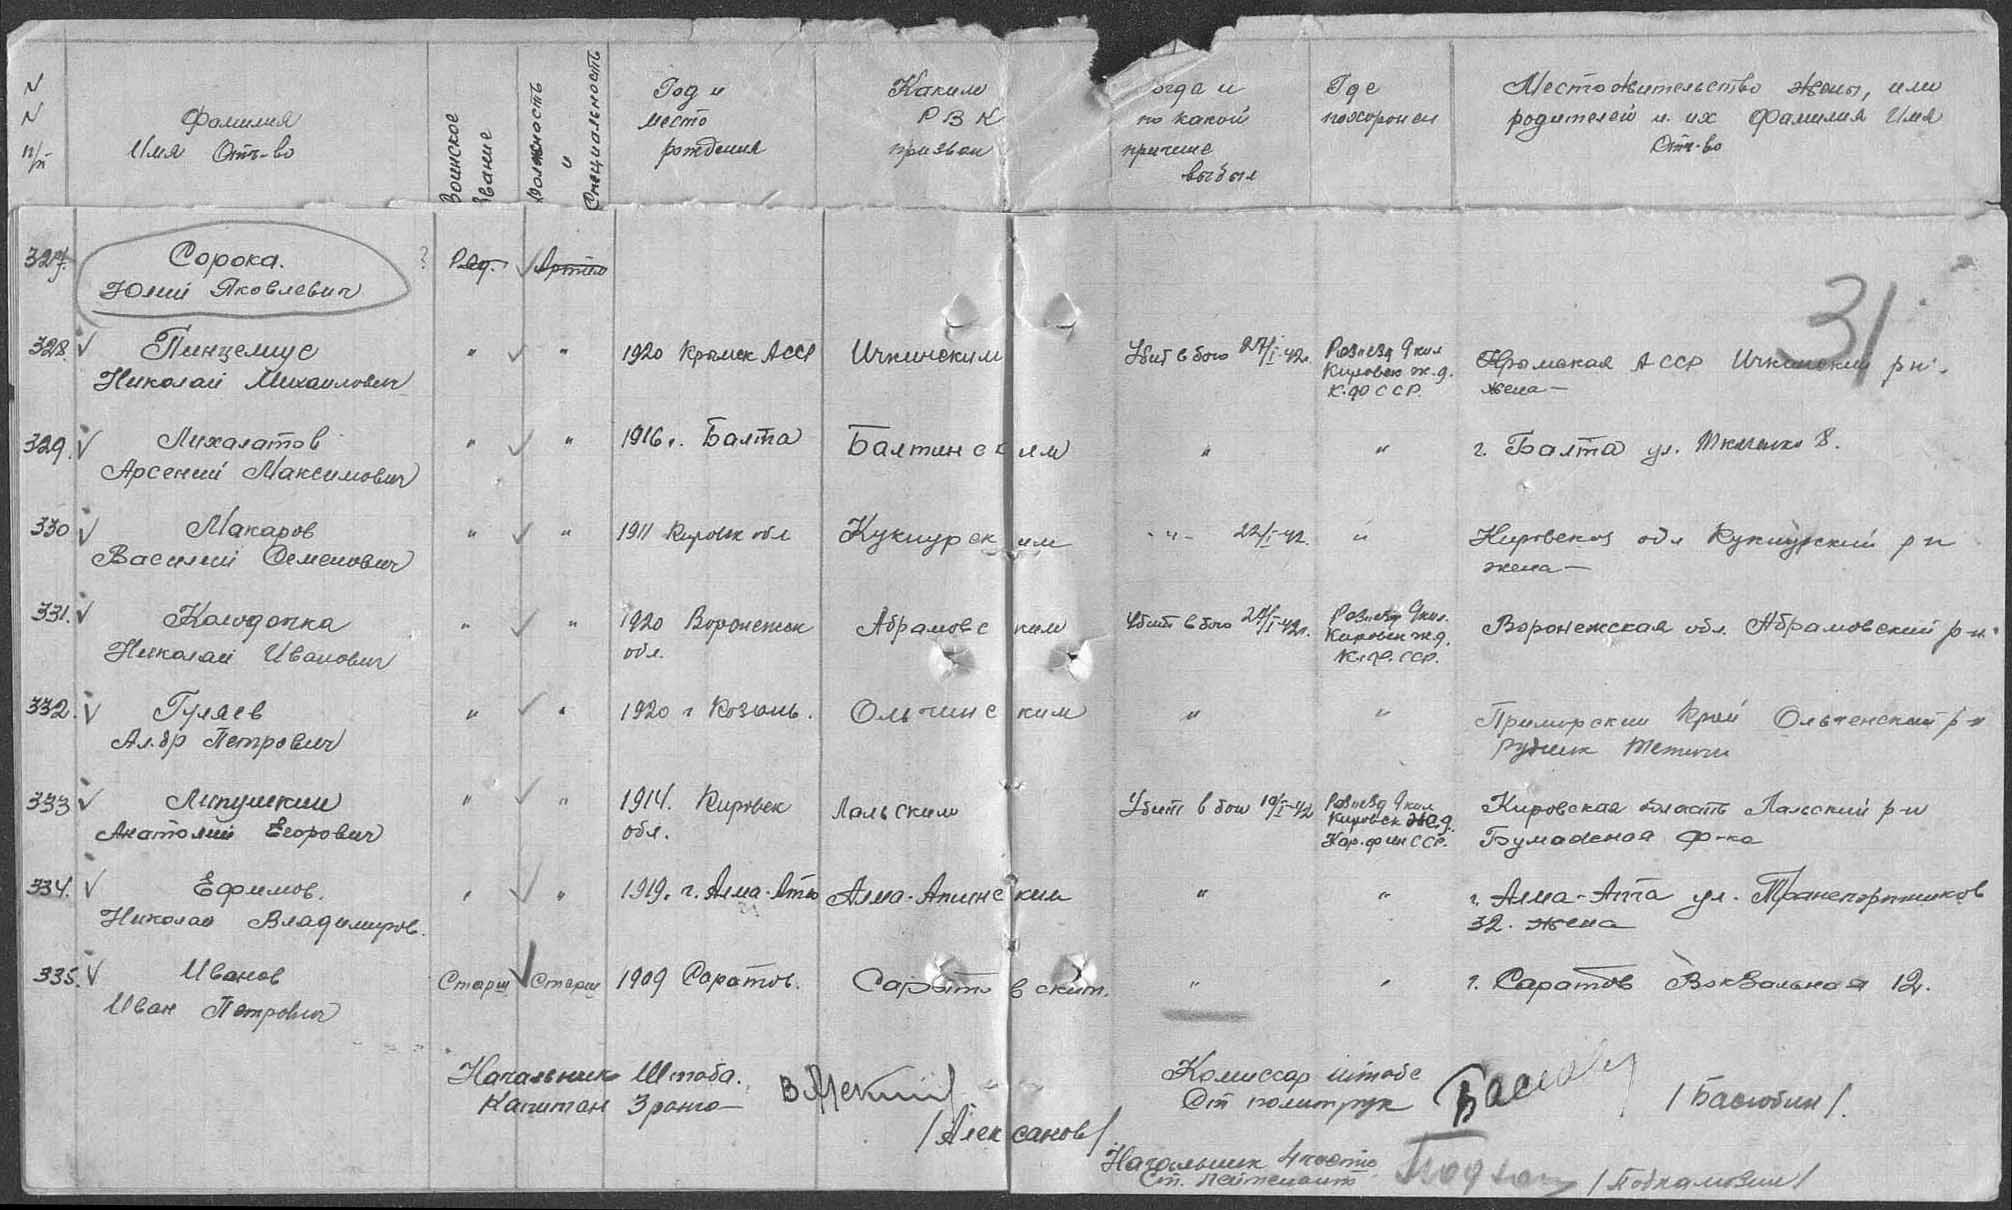 N N п/п
Фамилия
Имя Отч-во
Воинское звание
Должность и специальность
Год и место рождения
Каким РВК призван
огда и по какой причине выбыл
Где похоронен
Местожительство жены, или родителей и их Фамилия Имя Отч-во
31
327. Сорока. ? Ряд. Артил
Юлий Яковлевич
328. Пинцемиус " " 1920 Крымск АССР Ичкинским Убит в бою 27/I-42г. Разъезд 9 кил Кировск ж.д. К.ФССР. Крымская АССР Ичкинский р-н.
Николай Михаилович жена —
329. Лихолатов " " 1916г. Балта Балтинским " " г. Балта ул. 8.
Арсений Максимович
330 Макаров " " 1911 Кировск обл Кукнурским -"- 22/I-42. " Кировская обл Кукнурский р-н
Василий Семенович жена —
331. Колодочка " " 1920 Воронежск обл. Абрамовским Убит в бою /I-42г. Разъезд 9 кил. Кировск ж.д. К.Ф.ССР. Воронежская обл. Абрамовский р-н.
Николай Иванович
332. Гуляев " " 1920 г Козюль. Ольгинским " " Приморский Край Ольгенский р-н
Ал.др Петрович рудник Тетюхи
333 Липушкин " " 1914. Кировск обл. Лальским Убит в бою 19/I-42 Разъезд 9 кил Кировск ж.д. Кар.фин ССР. Кировская область Лальский р-н
Анатолий Егорович Бумажная ф-ка
334. Ефимов. " " 1919. г. Алма-Ата Алма-Атинским " " г. Алма-Атта ул. Транспортников
Николай Владимиров. 32. жена
335. Иванов Старш Старш 1909 Саратов. Саратовским. " " г. Саратов Вокзальная 12.
Иван Петрович
Начальник Штаба.
Капитан 3 ранга
/Алексанов/
Комиссар штаба
Ст политрук /Баслобин/.
Начальник 4 части
Ст. Лейтенант